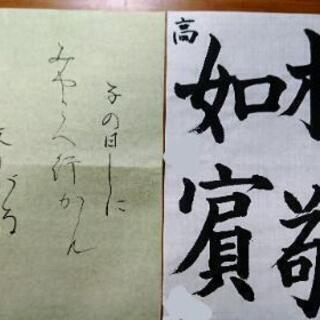 相敬
如賓
高
子の日しに
みやこへ行かん
友もがな